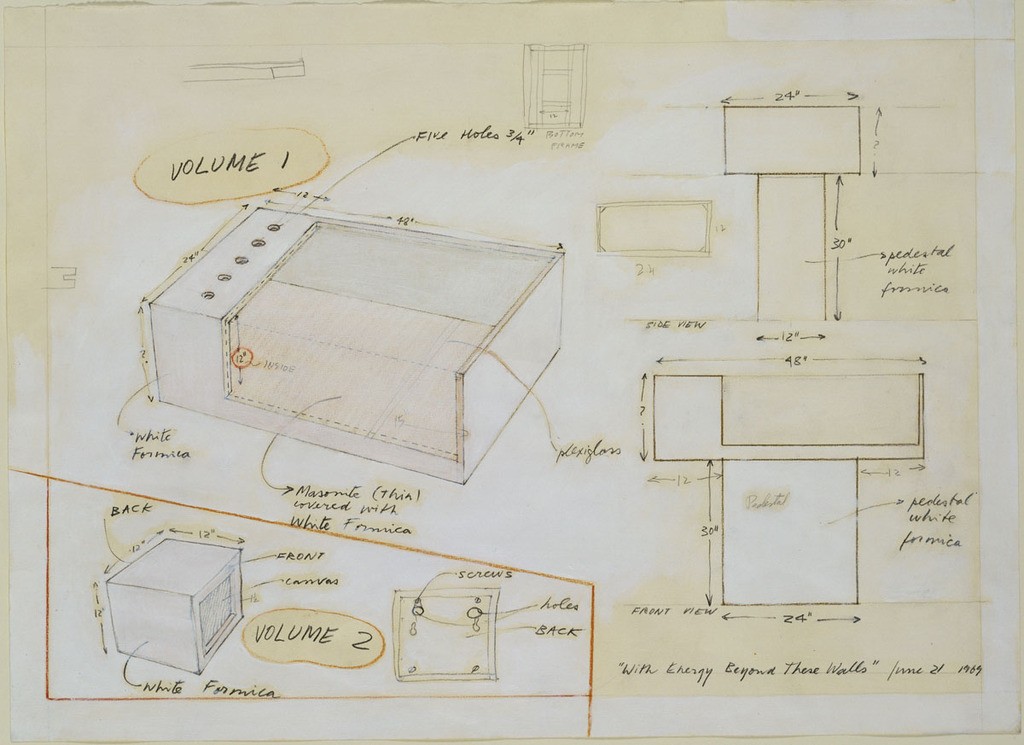 12
BOTTOM
FRAME
FIVE HOLES 3/4"
VOLUME 1
12
48"
24"
?
12"
INSIDE
15
White
Formica
Masonite (thin)
covered with
White Formica
plexiglass
24"
?
30"
pedestal
white
formica
12
24
SIDE VIEW
12"
48"
?
12
12
Pedestal
30"
pedestal
white
formica
FRONT VIEW
24"
BACK
12"
12"
12"
FRONT
canvas
12
VOLUME 2
White Formica
screws
holes
BACK
"With Energy Beyond These Walls" June 21 1969